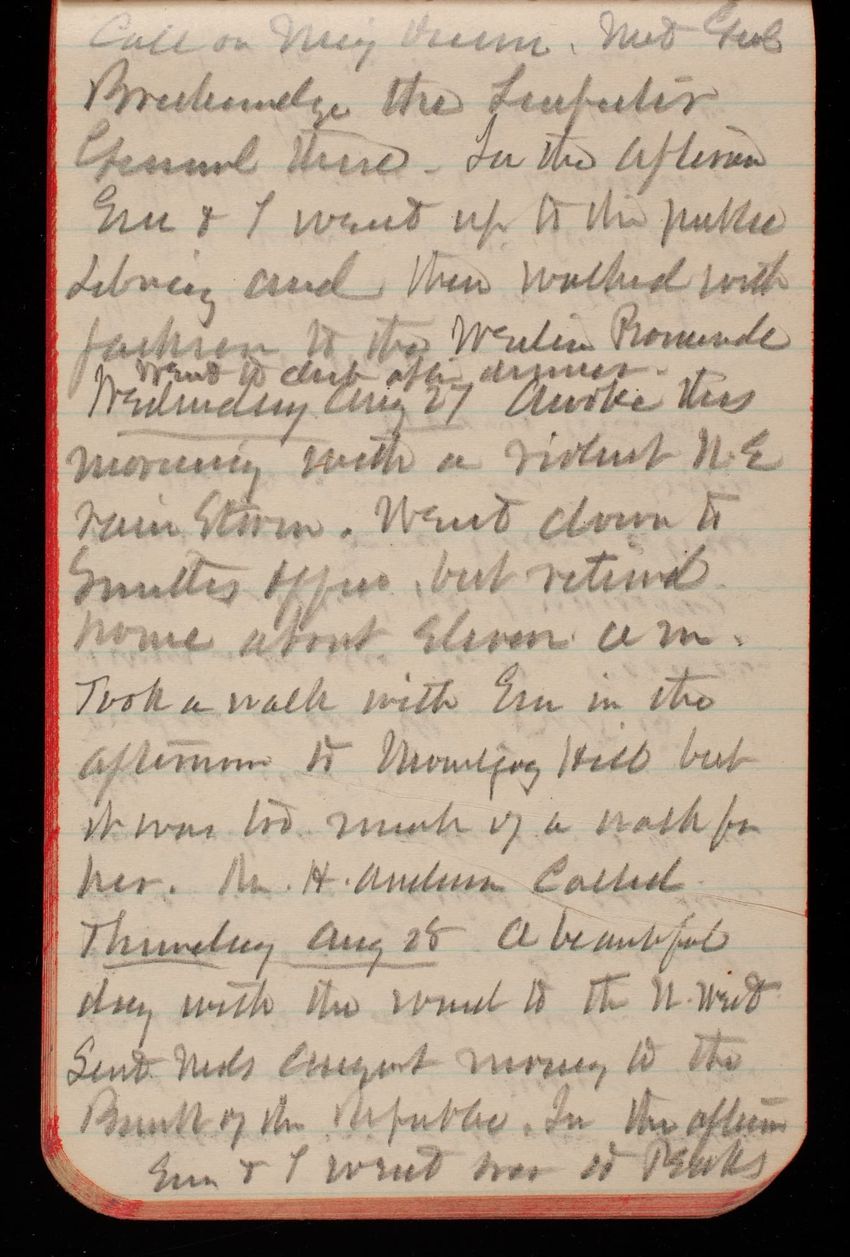 Call on Maj [?]. Met Genl
Breckinridge the Inspector
General there. In the afternoon
Em & I went up to the public
Library and then walked with
Jackson to the Western Promenade
Went to club after dinner.
Wednesday Aug 27 Awoke this
morning with a violent N.E
rain Storm. Went down to
Smiths office, but retired
home about Eleven a m.
Took a walk with Em in the
afternoon to Munjoy Hill but
it was too much of a walk for
her. H. Anderson Called
Thursday Aug 28 A beautiful
day with the wind to the N. West
Sent Neds August money to the
Bank of the Republic. In the afternoon
Em & I went over to Peaks